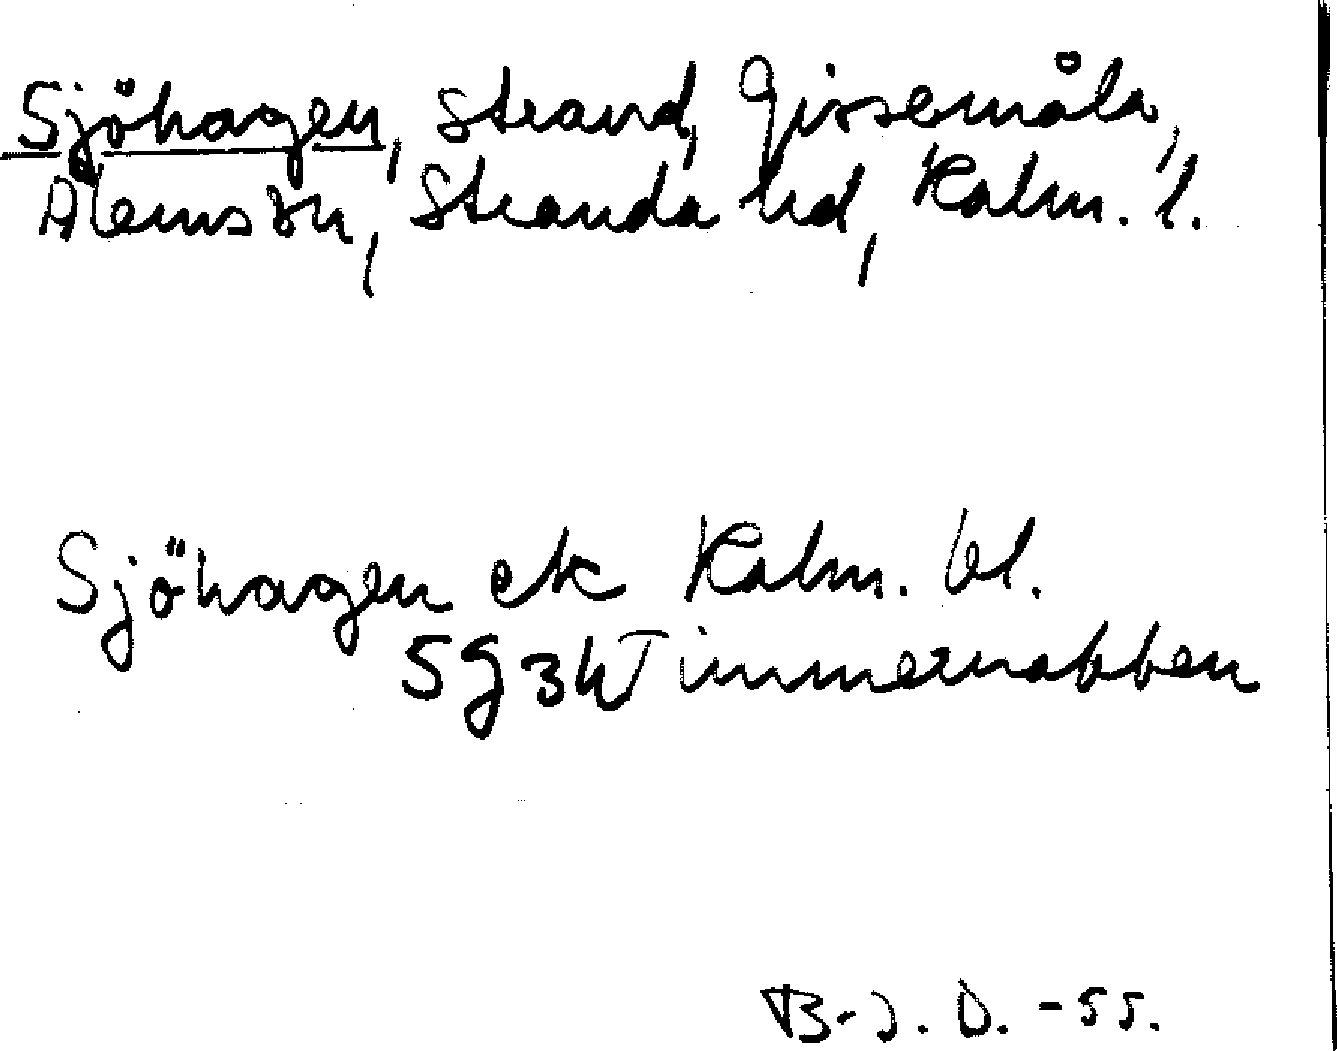 Sjöhagen, strand, Gissemåla,
Ålems sn, Stranda hd, Kalm. l.
Sjöhagen ek Kalm. bl.
5g34 Timmernabben
B-J. D. -55.